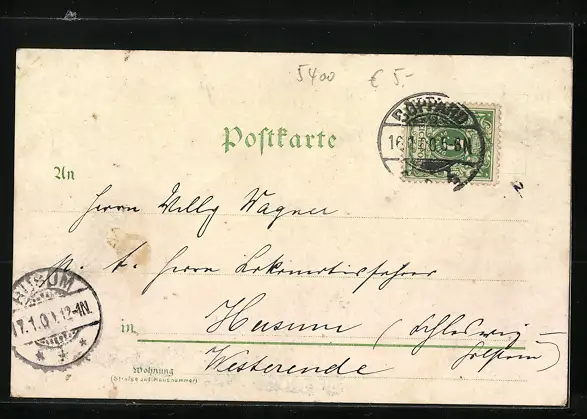 5400 € 5.-
Postkarte
BOPPARD
16.1.0 6-8N
An
Herrn Willy Wagner
p. A. Herrn Lokomotivführer
HUSUM
17.1.0 12-1N.
in Husum (Schleswig-
Holstein)
Westerende
Wohnung
(Straße und Hausnummer)